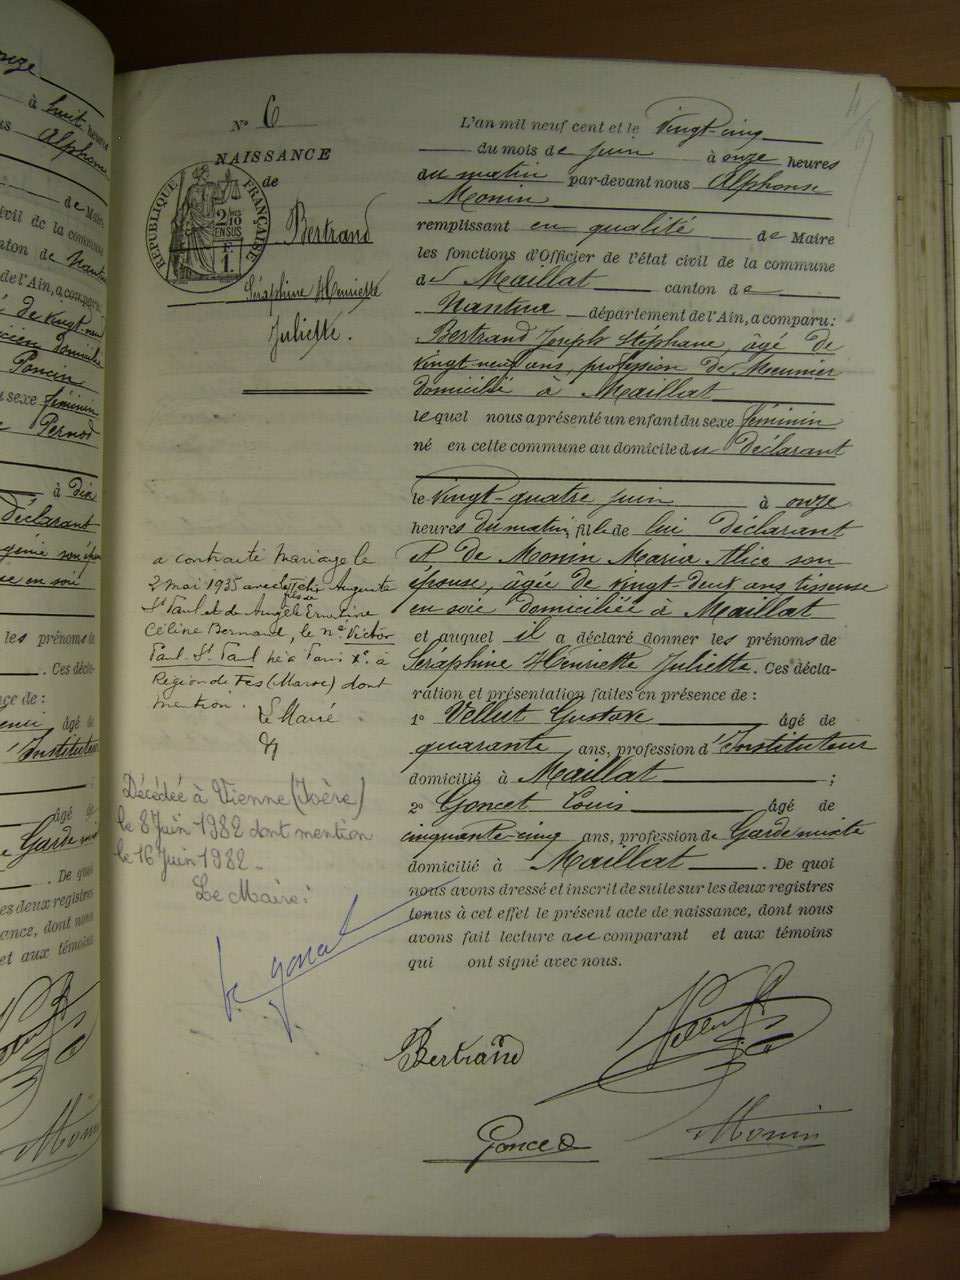 onze
à huit heures
Alphonse
de Maire
civil de la commune
canton de Nantua
de l'Ain, a comparu:
de vingt-neuf
domicilié
Poncin
sexe féminin
Pernod
à dix
déclarant
son
en soie
les prénoms de
Ces décla-
ce de:
âgé de
Instituteur
âgé de
Garde
De quoi
les deux registres
ance, dont nous
et aux témoins
Monin
N° 6
NAISSANCE
de
RÉPUBLIQUE FRANÇAISE
2/10
EN SUS
1 F.
Bertrand
Séraphine Henriette
Juliette.
a contracté mariage le
2 mai 1935 avec Auguste
fils de
St Paul et de Angèle Ernestine
Céline Bernard, le né Victor
Paul St Paul né à Paris X°. à
Région de Fes (Maroc) dont
mention.
Le Maire
Décédée à Vienne (Isère)
le 8 Juin 1982 dont mention
le 16 Juin 1982 -
Le Maire:
L'an mil neuf cent et le Vingt-cinq
du mois de juin à onze heures
du matin par-devant nous Alphonse
Monin
remplissant en qualité de Maire
les fonctions d'Officier de l'état civil de la commune
de Maillat canton de
Nantua département de l'Ain, a comparu:
Bertrand Joseph Stéphane, âgé de
vingt-neuf ans, profession de Meunier
domicilié à Maillat
lequel nous a présenté un enfant du sexe féminin
né en cette commune au domicile du déclarant
le vingt-quatre juin à onze
heures du matin, fille de lui déclarant
et de Monin Maria Alice son
épouse, âgée de vingt-deux ans tisseuse
en soie domiciliée à Maillat
et auquel il a déclaré donner les prénoms de
Séraphine Henriette Juliette. Ces décla-
ration et présentation faites en présence de:
1° Vellut Gustave âgé de
quarante ans, profession d'Instituteur
domicilié à Maillat;
2° Goncet Louis âgé de
cinquante-cinq ans, profession de Garde mixte
domicilié à Maillat. De quoi
nous avons dressé et inscrit de suite sur les deux registres
tenus à cet effet le présent acte de naissance, dont nous
avons fait lecture au comparant et aux témoins
qui ont signé avec nous.
Bertrand
Vellut
Goncet
Monin